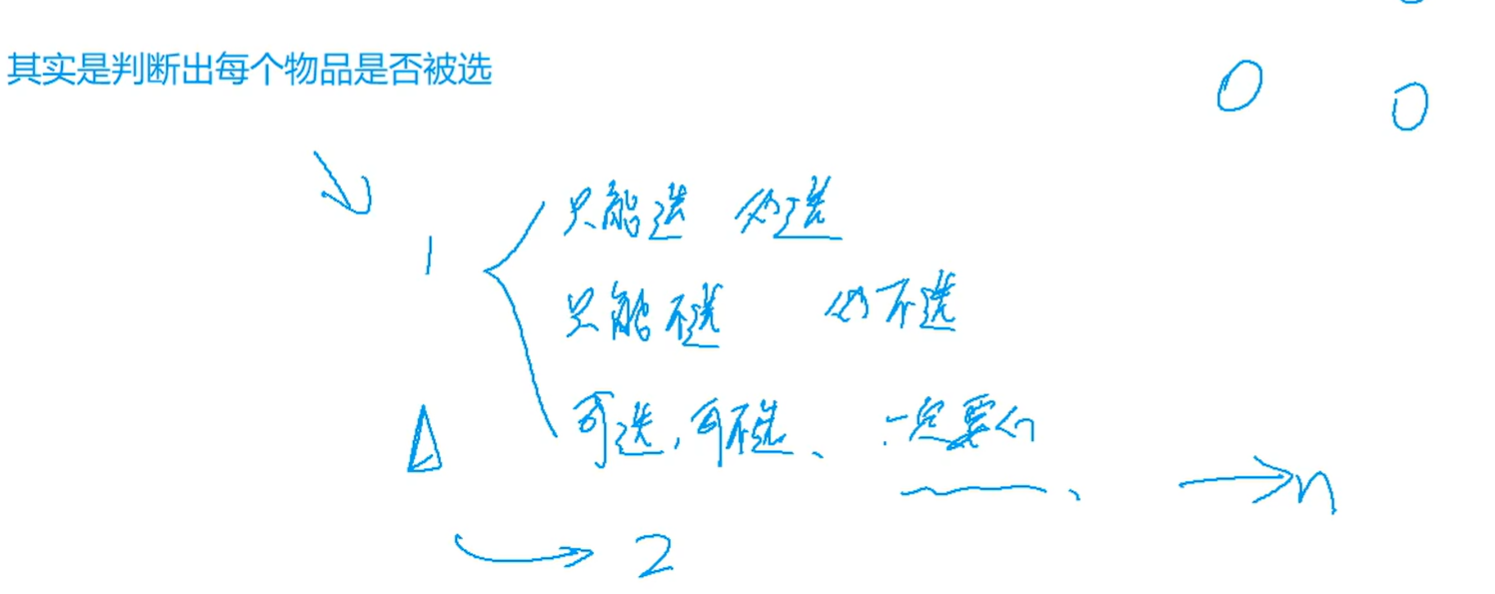 其实是判断出每个物品是否被选
0 0
1
只能选 必选
只能不选 必不选
可选，可不选、一定要
→n
2